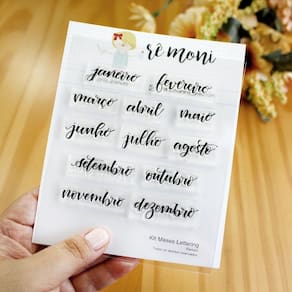 rê moni
janeiro fevereiro
março abril maio
junho julho agosto
setembro outubro
novembro dezembro
Kit Meses Lettering